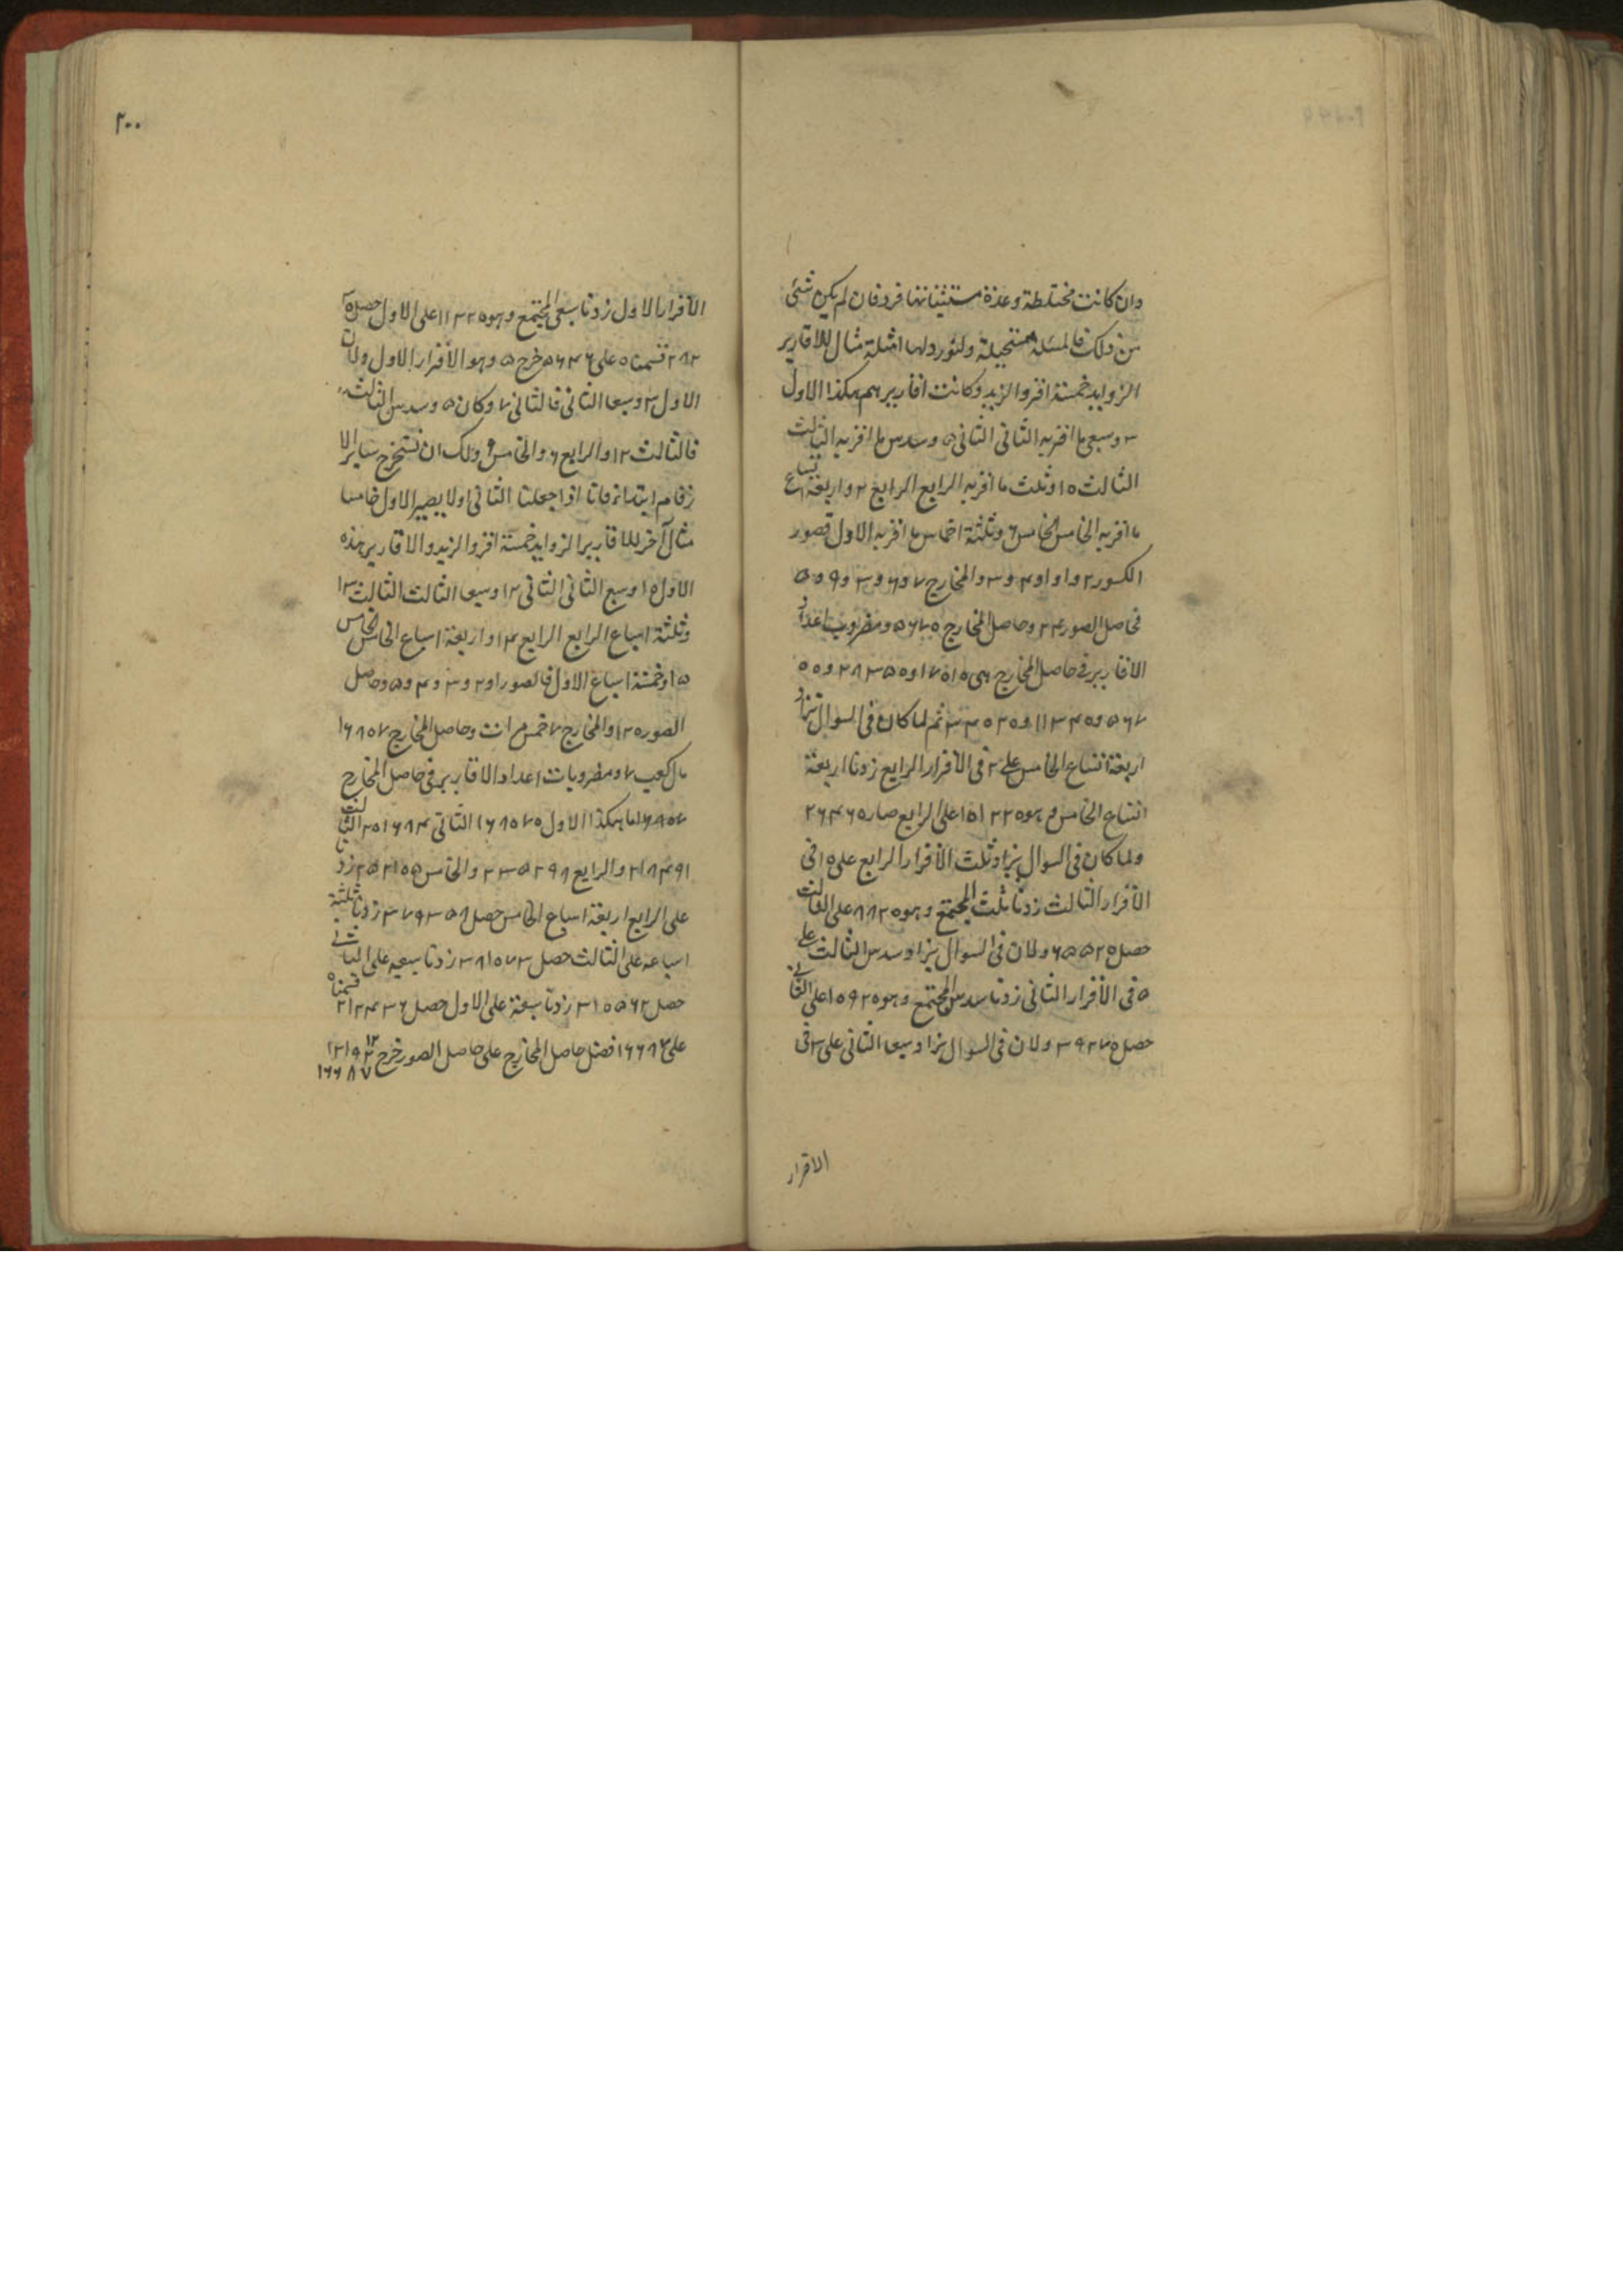 وان كانت مختلطة وعدة مستثنياتها فرد فان لم يكن شئ
من ذلك فالمسئلة مستحيلة ولنورد لها امثلة مثال للاقارير
الزوايد خمسة اقروا لزيد وكانت اقاريرهم هكذا الاول
٣ وسبعى ما اقر به الثانى الثانى ٥ وسدس ما اقر به الثالث
الثالث ١٠ وثلث ما اقر به الرابع الرابع ٢ واربعة اتساع
ما اقر به الخامس الخامس ٦ وثلثة اخماس ما اقر به الاول فصور
الكسور ٢ و١ و١ و٤ و٣ والمخارج ٧ و٦ و٣ و٩ و٥
فحاصل الصور ٢٤ وحاصل المخارج ٥٦٧٠ ومضروب اعداد
الاقارير فى حاصل المخارج هى ١٧٠١٠ و٢٨٣٥٠ و
٥٦٧٠٠ و١١٣٤٠ و٣٤٠٢٠ ثم لما كان فى السوال تزاد
اربعة اتساع الخامس على ٢ فى الاقرار الرابع زدنا اربعة
اتساع الخامس وهو ١٥١٢٠ على الرابع صار ٢٦٤٦٠
ولما كان فى السوال يزاد ثلث الاقرار الرابع على ١٠ فى
الاقرار الثالث زدنا ثلث المجتمع وهو ٨٨٢٠ على الثالث
حصل ٦٥٥٢٠ ولان فى السوال يزاد سدس الثالث على
٥ فى الاقرار الثانى زدنا سدس المجتمع وهو ١٠٩٢٠ على الثانى
حصل ٣٩٢٧٠ ولان فى السوال يزاد سبعا الثانى على ٣ فى
الاقرار
٢٠٠
الاقرار الاول زدنا سبعى المجتمع وهو ١١٢٢٠ على الاول حصل
٢٨٢٣٠ قسمناه على ٥٦٤٦ خرج ٥ وهو الاقرار الاول ولان
الاول ٣ وسبعا الثانى فالثانى ٧ وكان ٥ وسدس الثالث
فالثالث ١٢ والرابع ٦ والخامس ٩ ولك ان تستخرج ساير الا
رقام ابتداء فانا اذا جعلنا الثانى اولا يصير الاول خامسا
مثال آخر للاقارير الزوايد خمسة اقروا لزيد والاقارير هذه
الاول ١٠ وسبع الثانى الثانى ١٢ وسبعا الثالث الثالث ١٣
وثلثة اسباع الرابع الرابع ١٤ واربعة اسباع الخامس الخامس
١٥ وخمسة اسباع الاول فالصور ١ و٢ و٣ و٤ و٥ وحاصل
الصور ١٢٠ والمخارج ٧ خمس مرات وحاصل المخارج ١٦٨٠٧
مال كعب ٧ ومضروبات اعداد الاقارير فى حاصل المخارج
١٦٨٠٧ هكذا الاول ١٦٨٠٧٠ الثانى ٢٠١٦٨٤ الثالث
٢١٨٤٩١ والرابع ٢٣٥٢٩٨ والخامس ٢٥٢١٠٥ زدنا
على الرابع اربعة اسباع الخامس حصل ٣٧٩٣٥٨ زدنا ثلثة
اسباعه على الثالث حصل ٣٨١٠٧٣ زدنا سبعيه على الثانى
حصل ٣١٠٥٦٢ زدنا سبعة على الاول حصل ٢١٢٤٣٦ قسمناه
على ١٦٦٨٧ فضل حاصل المخارج على حاصل الصور خرج ١٢
١٢١٩٢
١٦٦٨٧